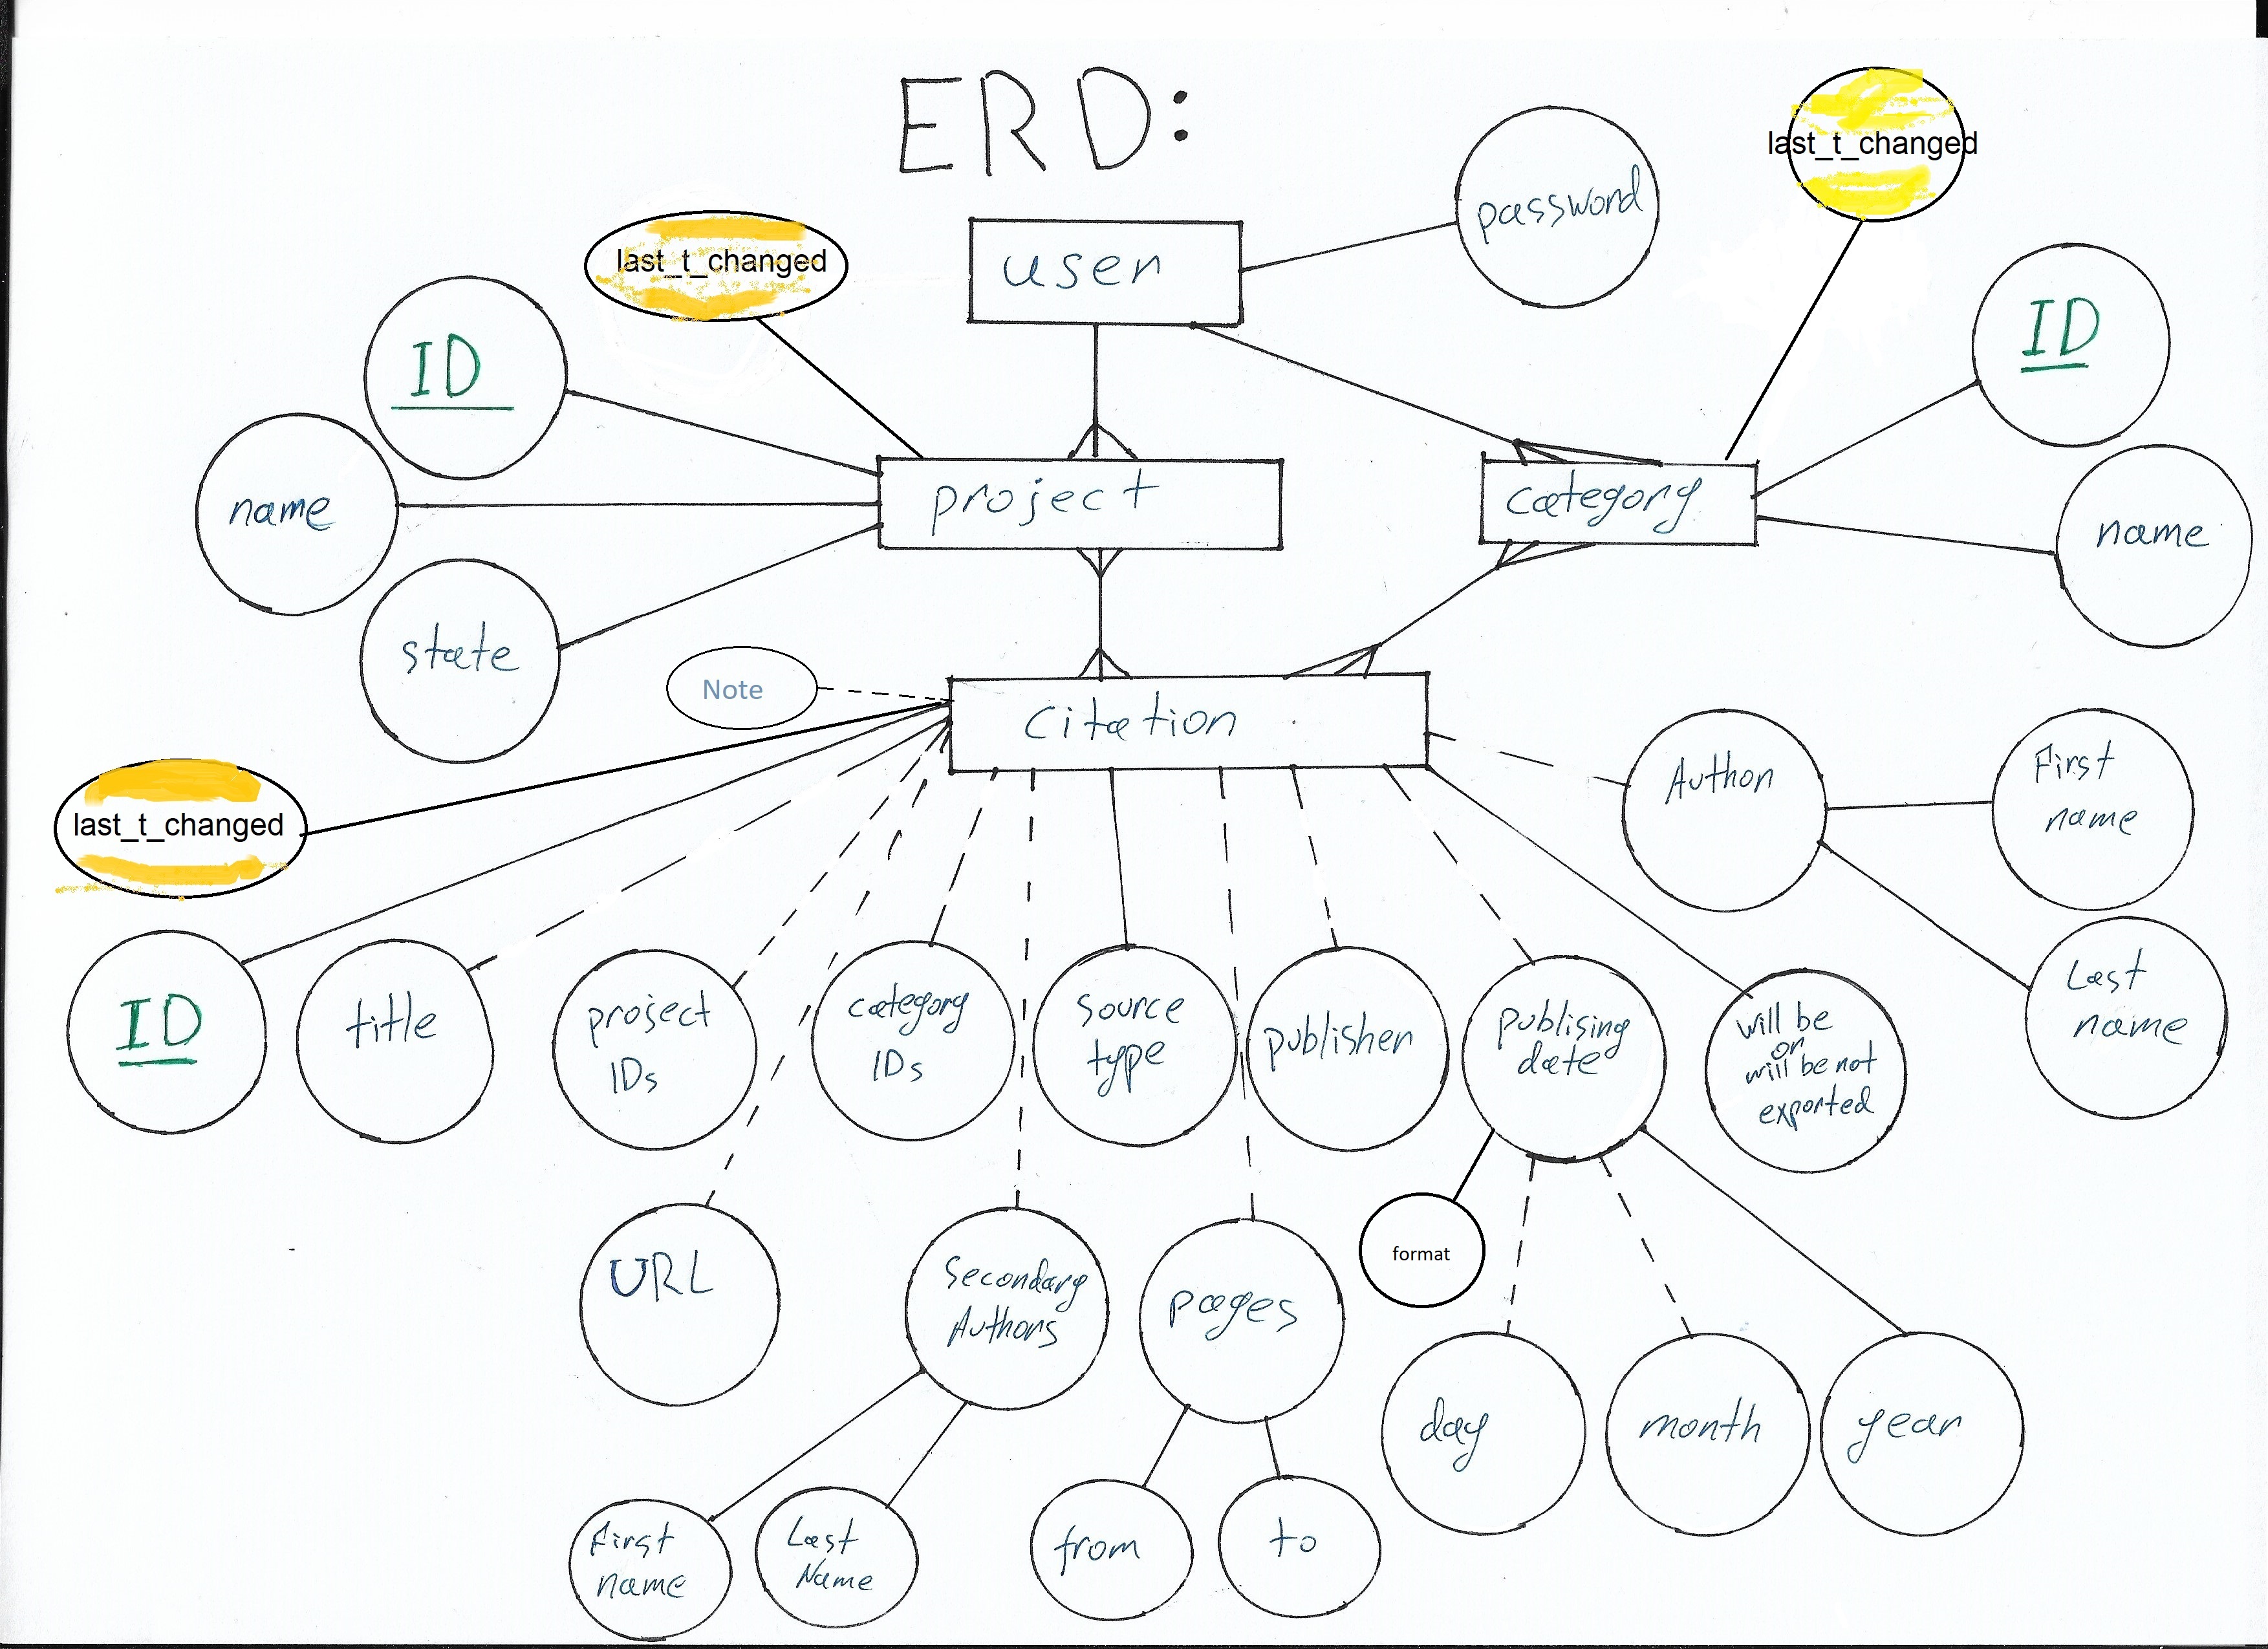 ERD:
last_t_changed
password
last_t_changed
user
ID
ID
name
project
category
name
state
Note
citation
Author
First
name
last_t_changed
ID
title
project
IDs
category
IDs
source
type
publisher
publising
date
will be
or
will be not
exported
Last
name
URL
Secondary
Authors
pages
format
day
month
year
First
name
Last
Name
from
to